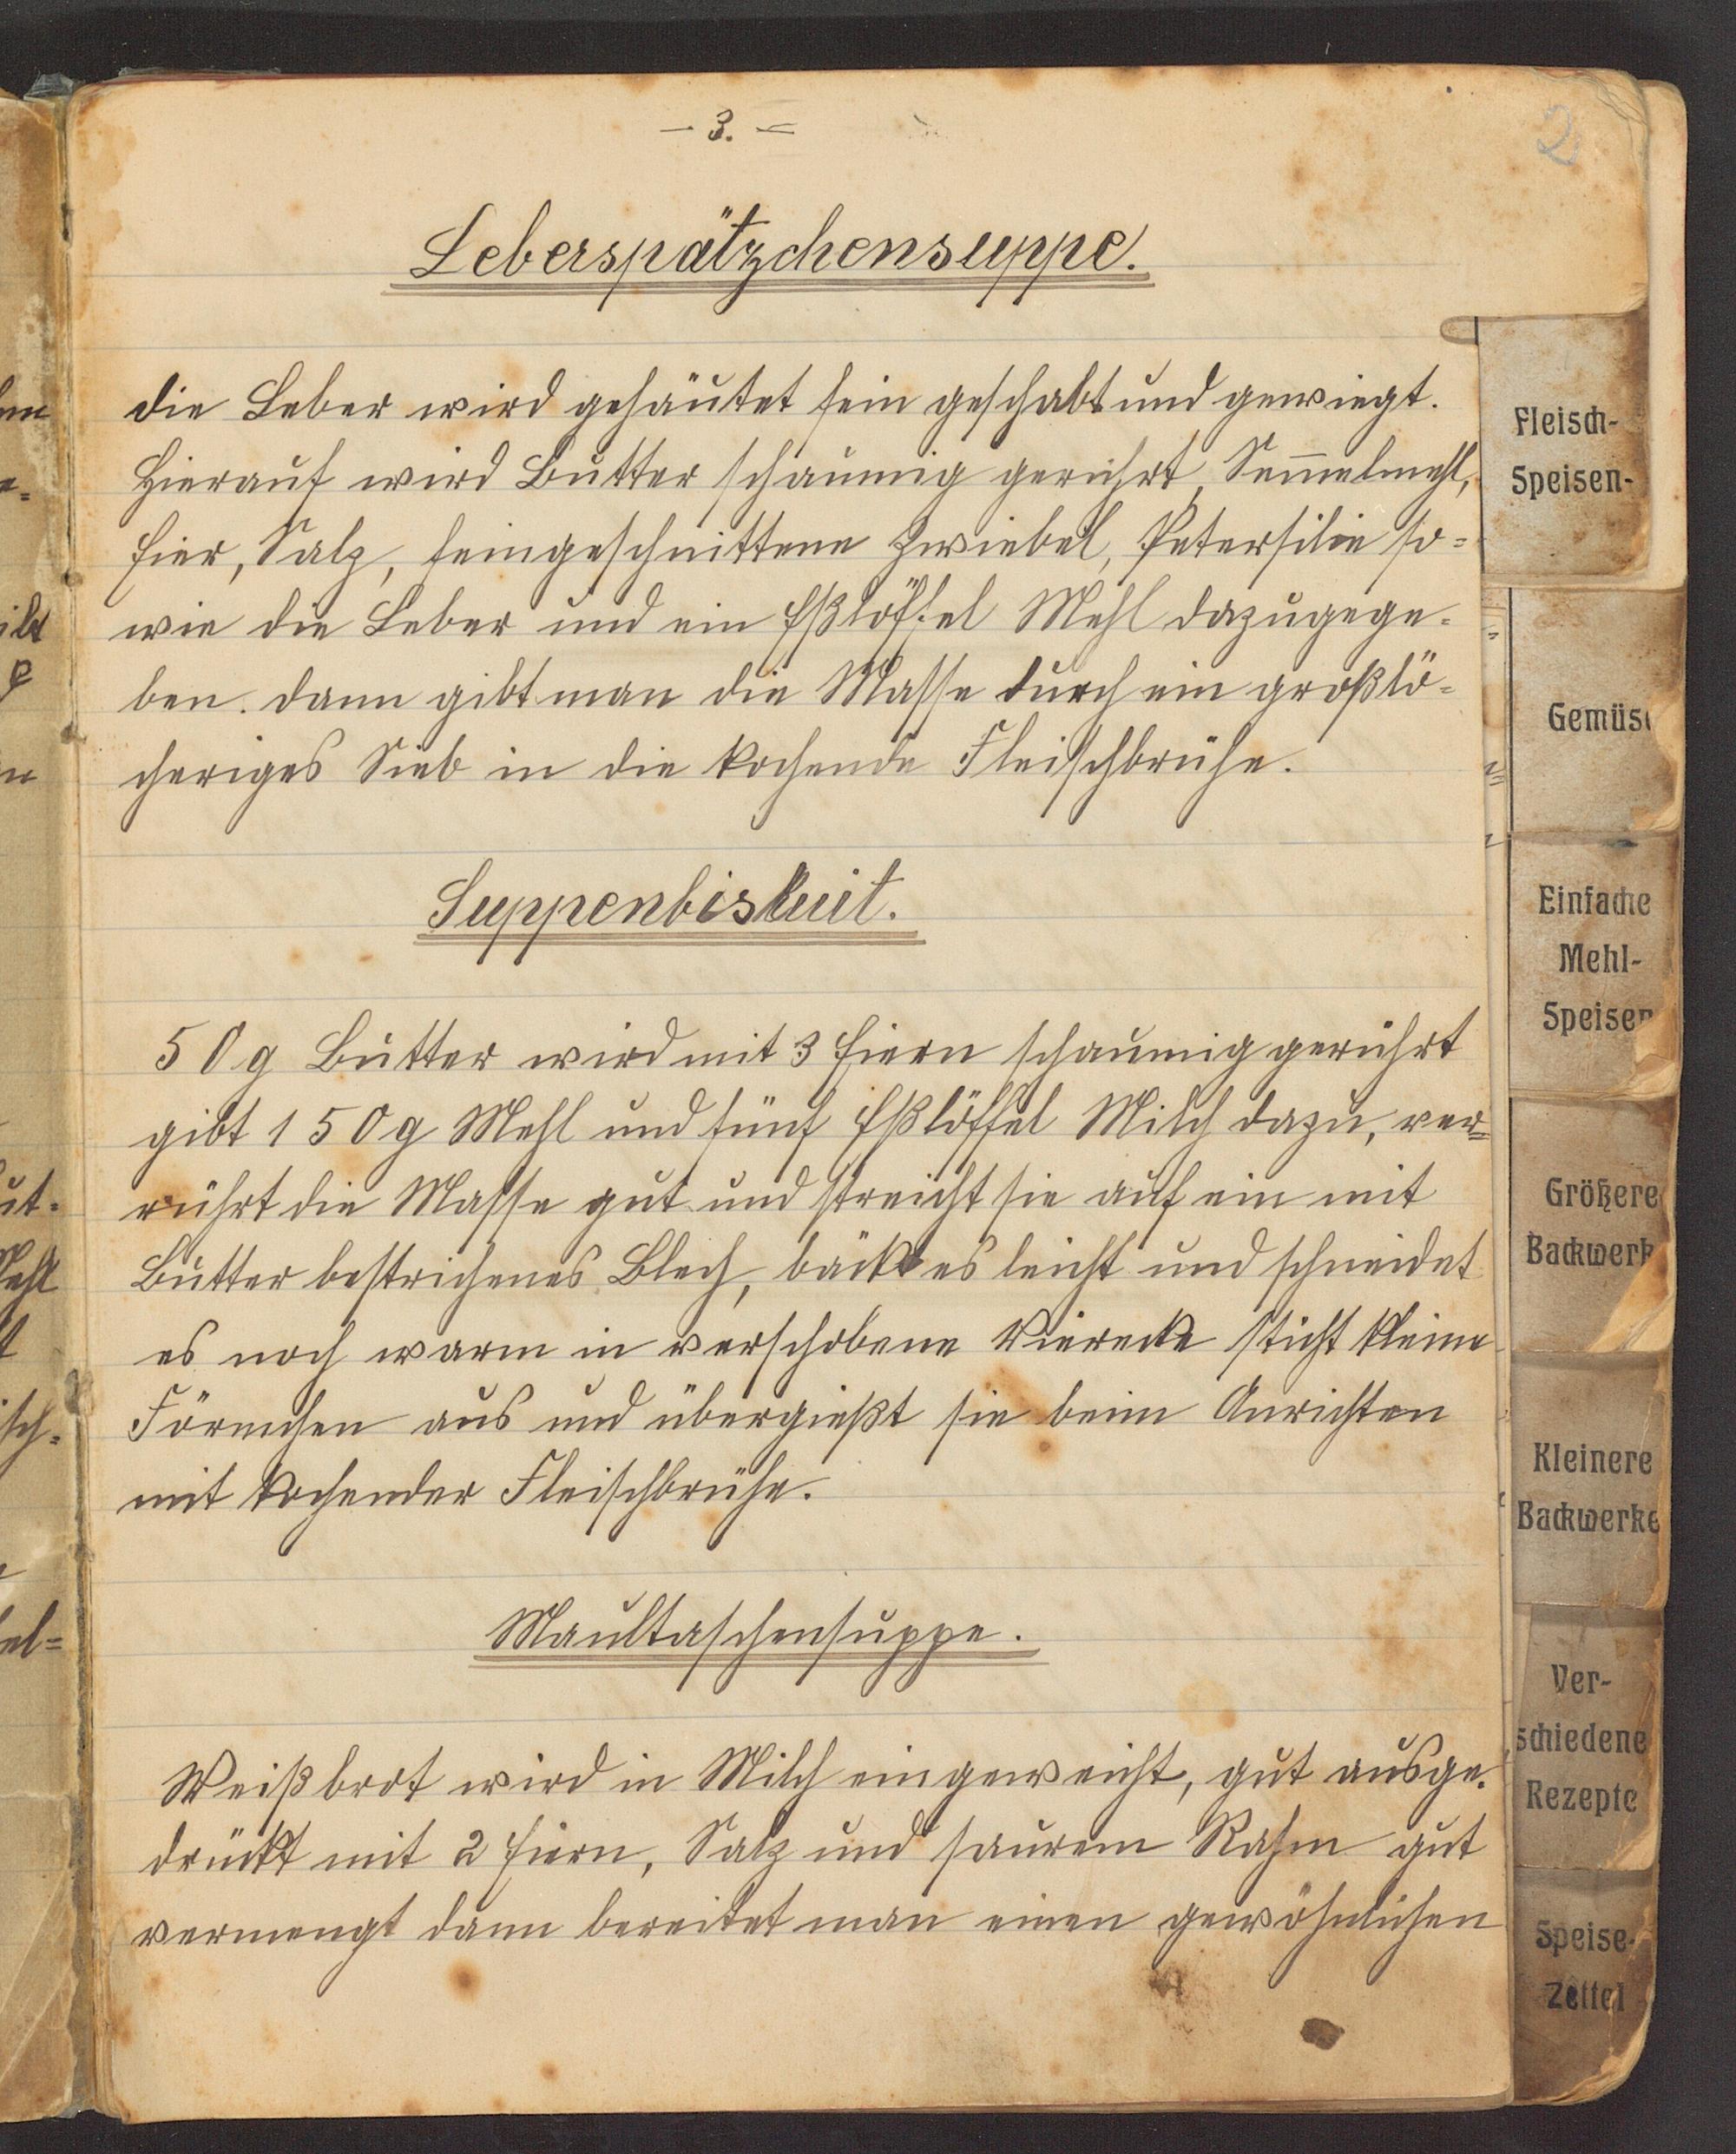 - 3. =
2
Leberspätzchensuppe.
die Leber wird gehäutet fein geschabt und gewiegt.
Hierauf wird Butter schaumig gerührt, Sem̅elmehl,
Eier, Salz, feingeschnittene Zwiebel, Petersilie so=
wie die Leber und ein Eßlöffel Mehl dazugege-
ben. dann gibt man die Masse durch ein großlö-
cheriges Sieb in die kochende Fleischbrühe.
Suppenbiskuit.
50g Butter wird mit 3 Eiern schaumig gerührt
gibt 150g Mehl und fünf Eßlöffel Milch dazu, ver=
rührt die Masse gut und streicht sie auf ein mit
Butter bestrichenes Blech, bäckt es leicht und schneidet
es noch warm in verschobene Vierecke sticht kleine
Förmchen aus und übergießt sie beim Anrichten
mit kochender Fleischbrühe.
Maultaschensuppe.
Weißbrot wird in Milch eingeweicht, gut ausge-
drückt mit 2 Eiern, Salz und saurem Rahm gut
vermengt dann bereitet man einen gewöhnlichen
Fleisch-
Speisen-
Gemüse
Einfache
Mehl-
Speisen
Größere
Backwerk
Kleinere
Backwerke
Ver-
schiedene
Rezepte
Speise-
Zettel